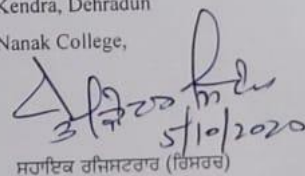 Kendra, Dehradun
Nanak College,
5/10/2020
ਸਹਾਇਕ ਰਜਿਸਟਰਾਰ (ਰਿਸਰਚ)